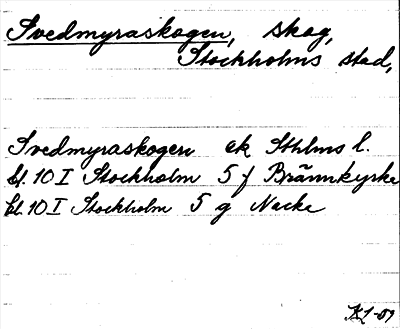 Svedmyraskogen, skog,
Stockholms stad,
Svedmyraskogen ek Sthlms l.
bl. 10 I Stockholm 5 f Brännkyrka
bl. 10 I Stockholm 5 g Nacka